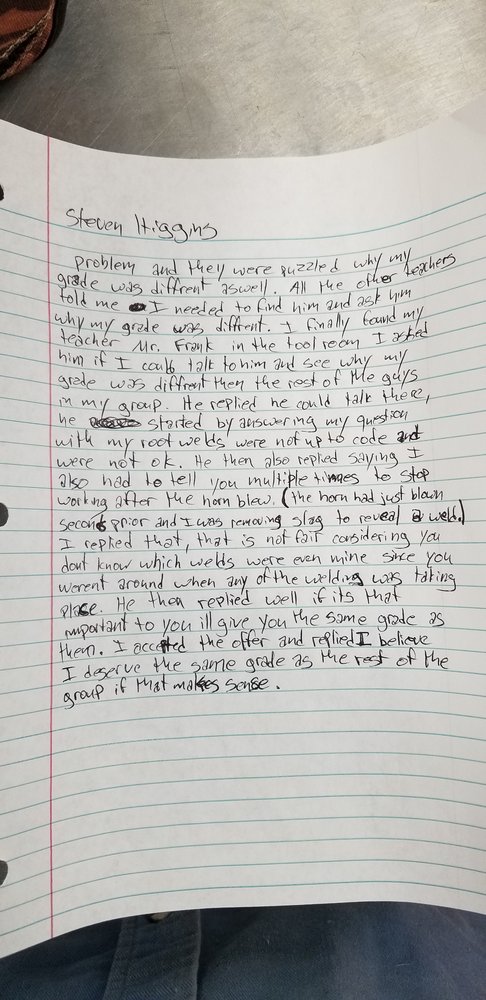 Steven Higgins
problem and they were puzzled why my
grade was diffrent aswell. All the other teachers
told me I needed to find him and ask him
why my grade was diffrent. I finally found my
teacher Mr. Frank in the tool room I asked
him if I could talk to him and see why my
grade was diffrent then the rest of the guys
in my group. He replied he could talk there,
he started by answering my question
with my root welds were not up to code and
were not ok. He then also replied saying I
also had to tell you multiple times to stop
working after the horn blew. (the horn had just blown
seconds prior and I was removing slag to reveal a weld.)
I replied that, that is not fair considering you
dont know which welds were even mine since you
werent around when any of the welding was taking
place. He then replied well if its that
important to you ill give you the same grade as
them. I accepted the offer and replied I believe
I deserve the same grade as the rest of the
group if that makes sense.